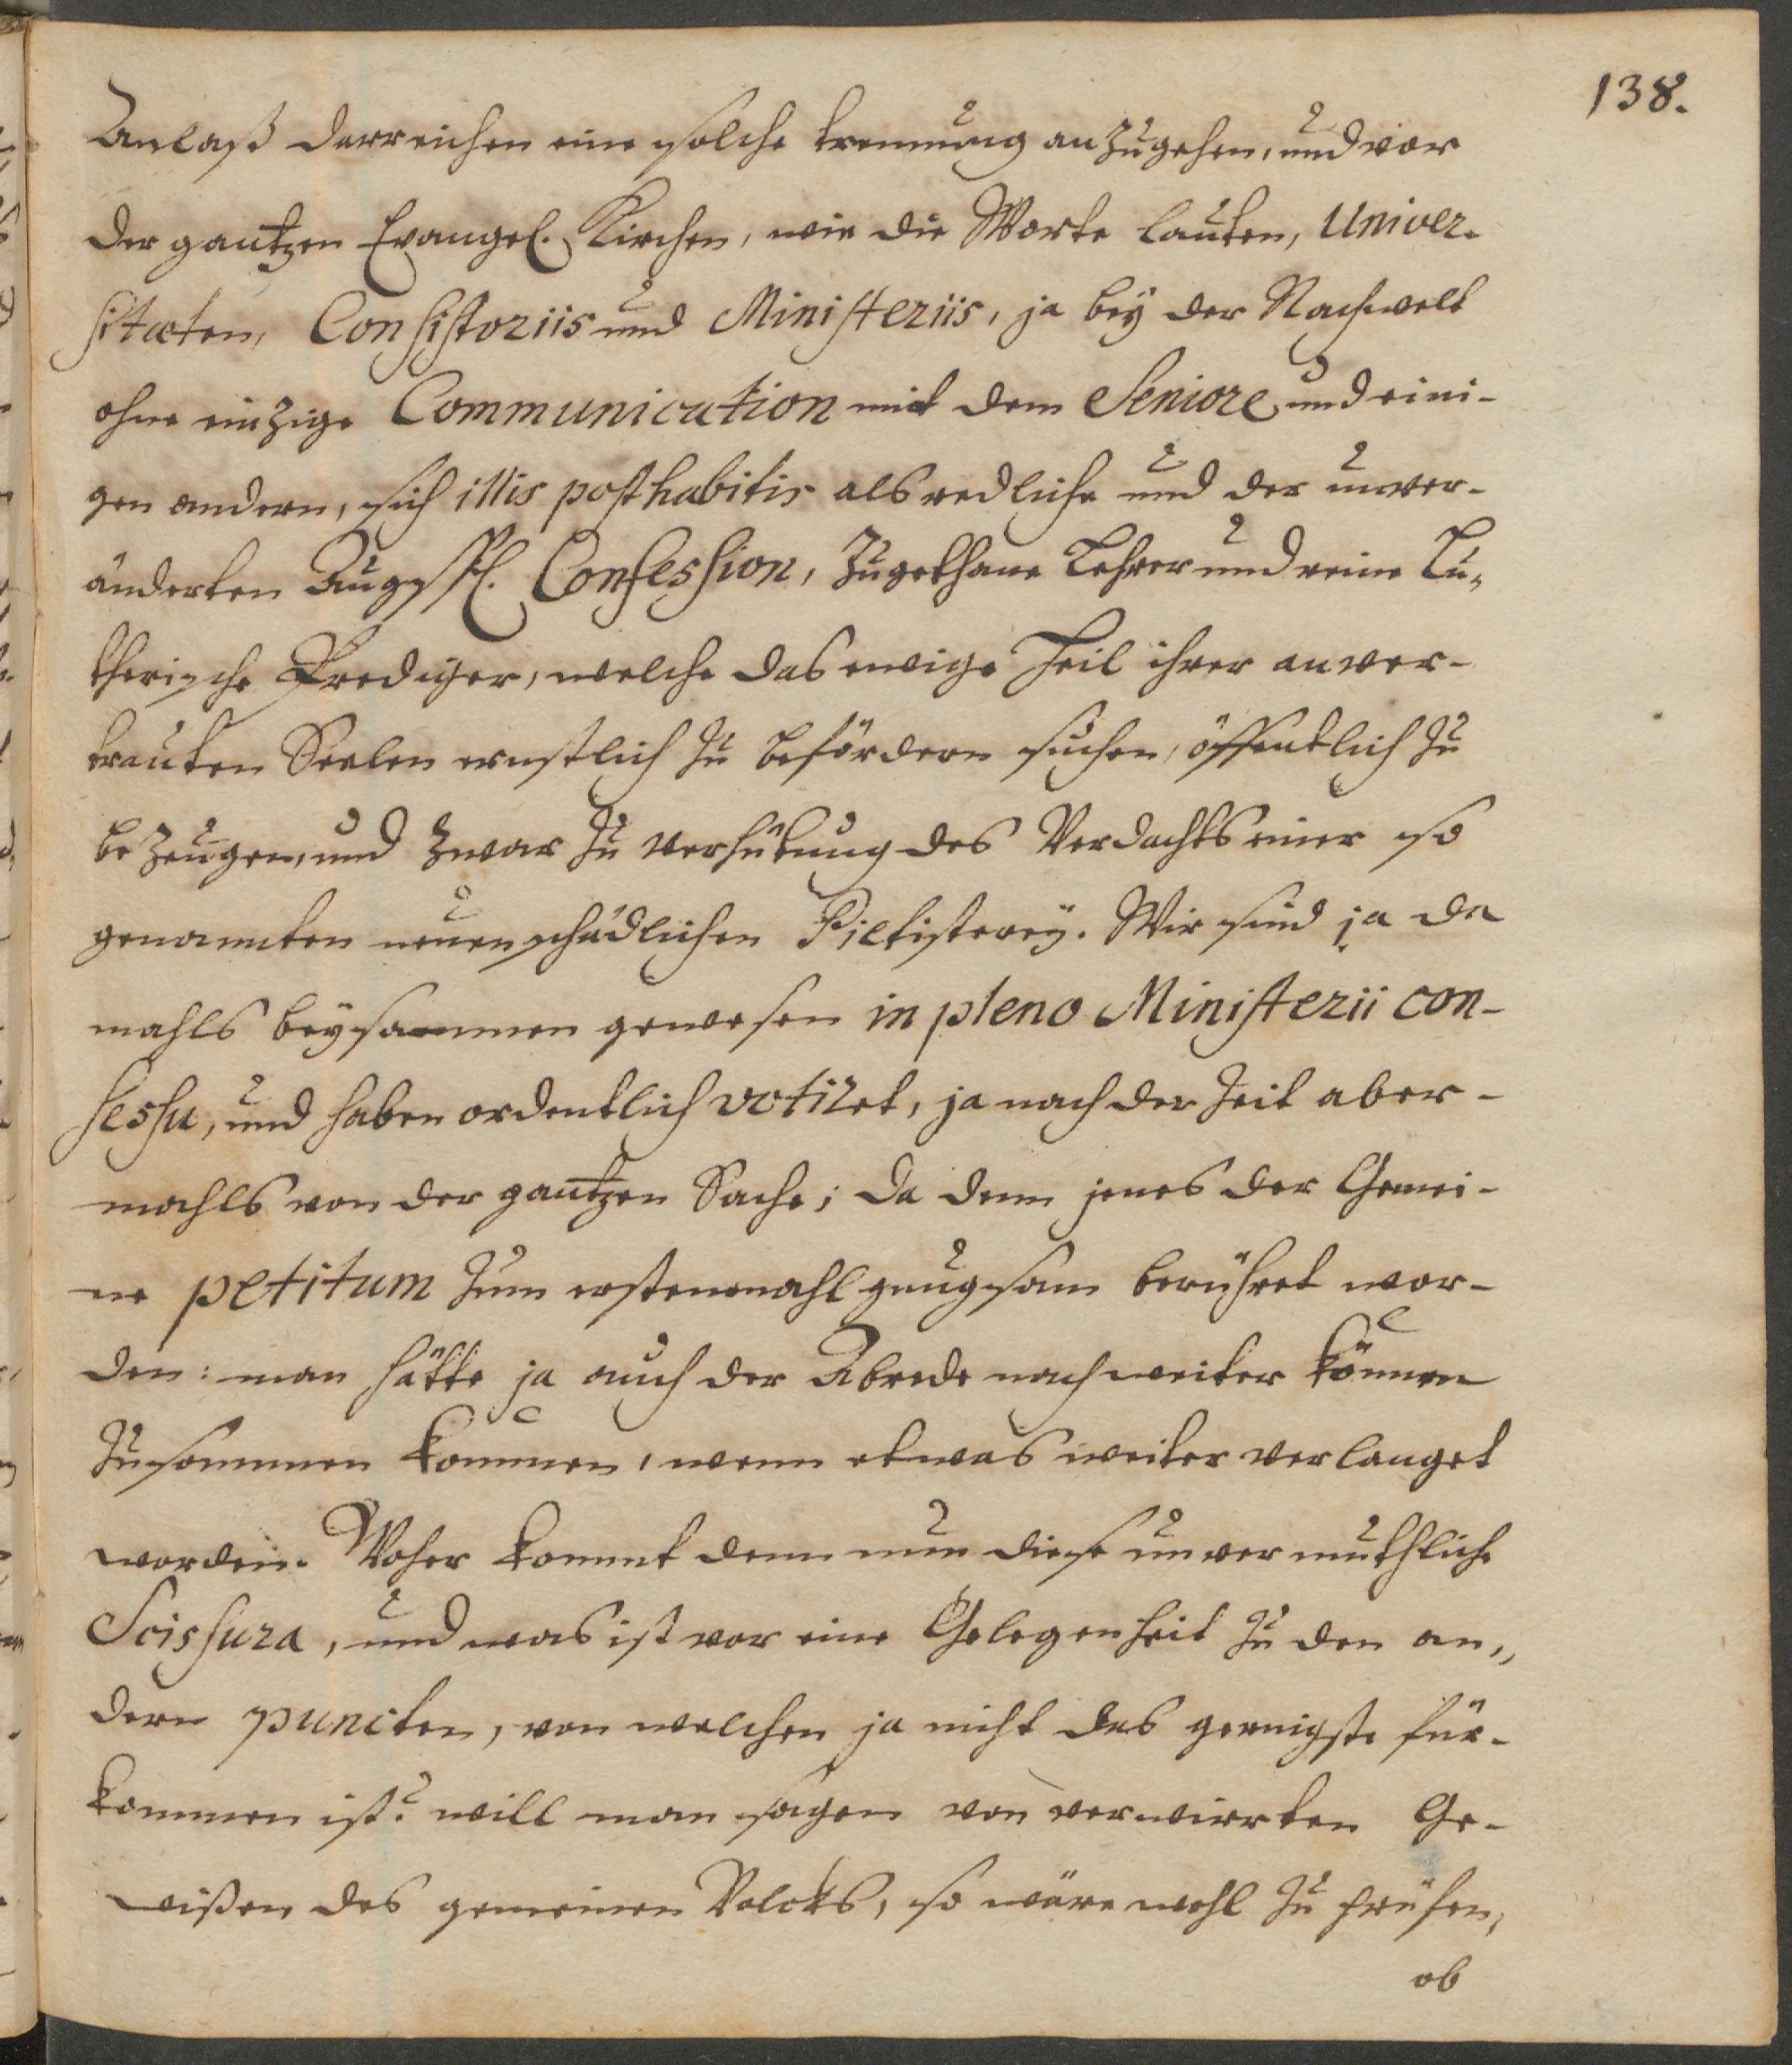 138.
Anlaß darreichen eine solche trennung anzugehen, und vor
der gantzen Evangel. Kirchen, wie die Worte lauten, Univer-
sitæten, Consistoriis und Ministeriis, ja bey der Nachwelt
ohne einzige Communication mit dem Seniore und eini-
gen andern, sich illis posthabitis als redliche und der unver-
änderten Augsp. Confession, zugethane Lehrer und reine Lu-
therische Prediger, welche das ewige Heil ihrer anver-
trauten Seelen ernstlich zu befördern suchen, öffentlich zu
bezeugen, und zwar zu verhütung des Verdachts einer so
genannten neuen schädlichen Pietisterey. Wir sind ja da
mahls beysammen gewesen in pleno Ministerii con-
sessu, und haben ordentlich votiret, ja nach der Zeit aber-
mahls von der gantzen Sache; da denn jenes der Gemei-
ne petitum zum erstenmahl gnugsam berühret wor-
den: man hätte ja auch der Abrede nach weiter können
zusammen kommen, wenn etwas weiter verlanget
worden. Woher kommt denn nun diese unvermuthliche
Scissura, und was ist vor eine Gelegenheit zu den an-
dern puncten, von welchen ja nicht das geringste für-
kommen ist? will man sagen von verwirrten Ge-
wißen des gemeinen Volcks, so wäre wohl zu prüfen,
ob